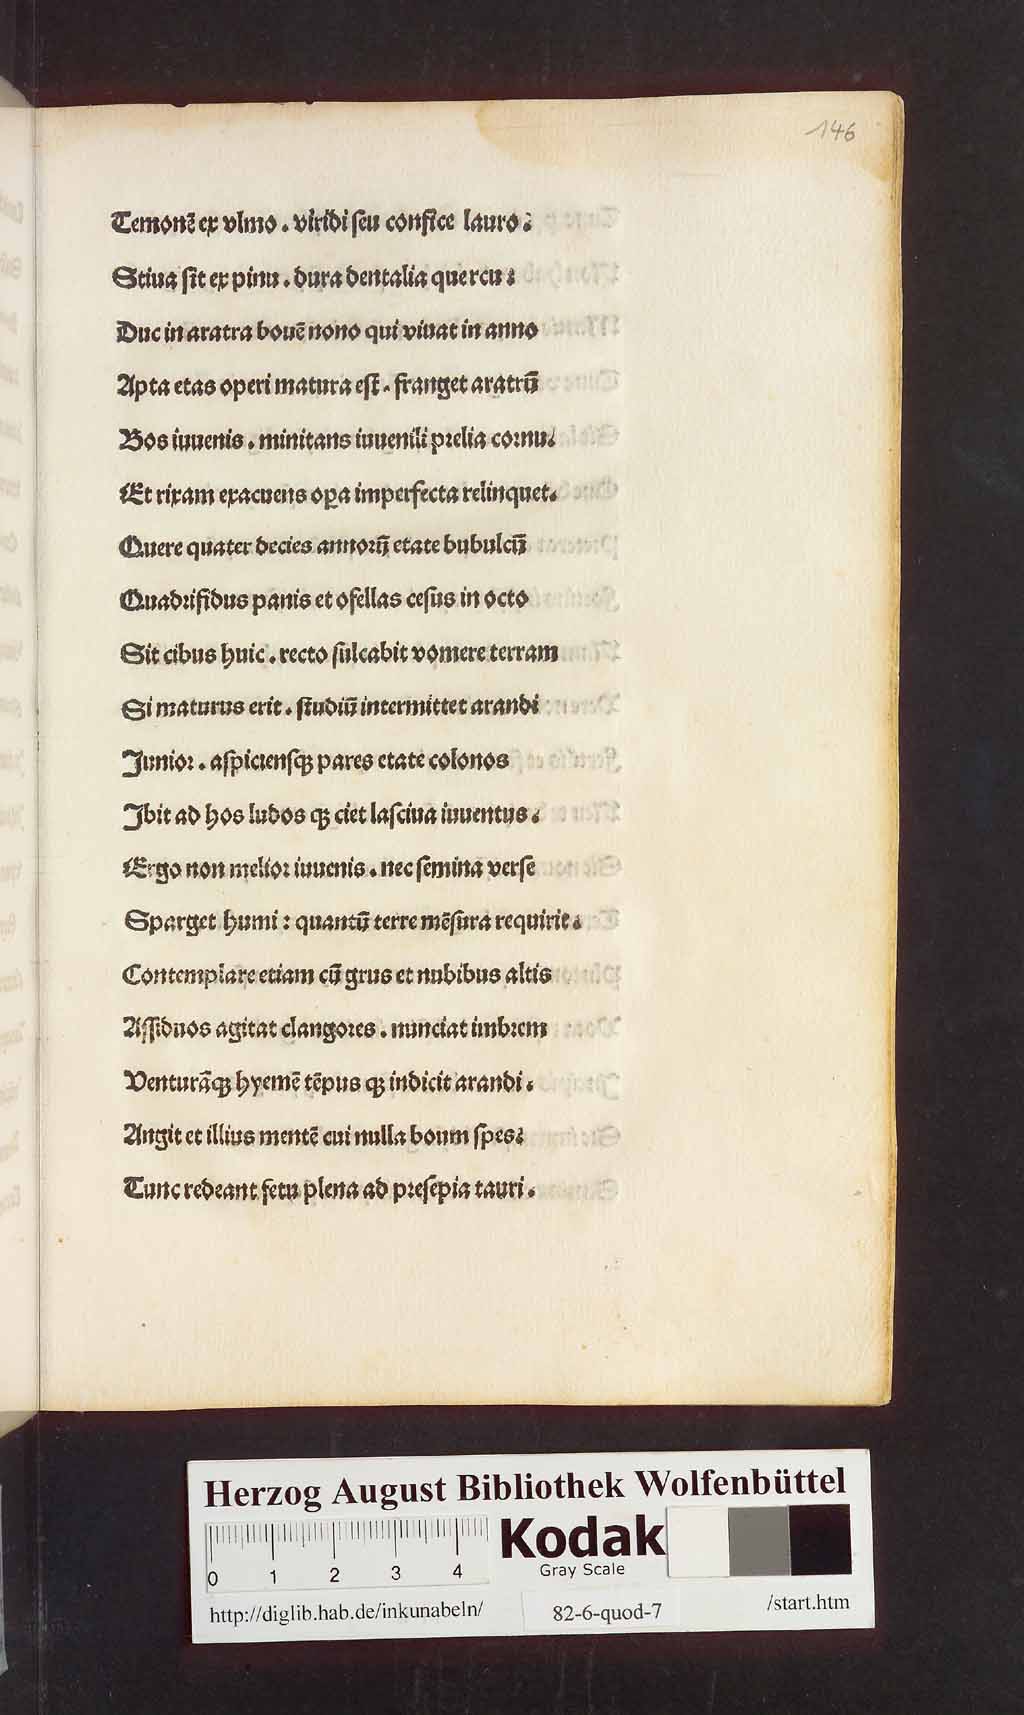 146
Temonē ex vlmo . viridi ſeu confice lauro :
Stiua ſit ex pinu . dura dentalia quercu :
Duc in aratra bouē nono qui viuat in anno
Apta etas operi matura eſt . franget aratrū
Bos iuuenis . minitans iuuenili prelia cornu .
Et rixam exacuens oꝑa imperfecta relinquet .
Quere quater decies annorū etate bubulcū
Quadrifidus panis et ofellas ceſus in octo
Sit cibus huic . recto ſulcabit vomere terram
Si maturus erit . ſtudiū intermittet arandi
Junior . aſpicienſqꝫ pares etate colonos
Jbit ad hos ludos qꝫ ciet laſciua iuuentus .
Ergo non melior iuuenis . nec ſemina verſe
Sparget humi : quantū terre mēſura requirit .
Contemplare etiam cū grus et nubibus altis
Aſſiduos agitat clangores . nunciat imbrem
Venturāqꝫ hyemē tēpus qꝫ indicit arandi .
Angit et illius mentē cui nulla boum ſpes :
Tunc redeant fetu plena ad preſepia tauri .
Herzog August Bibliothek Wolfenbüttel
Kodak
Gray Scale
0 1 2 3 4
http://diglib.hab.de/inkunabeln/ 82-6-quod-7 /start.htm